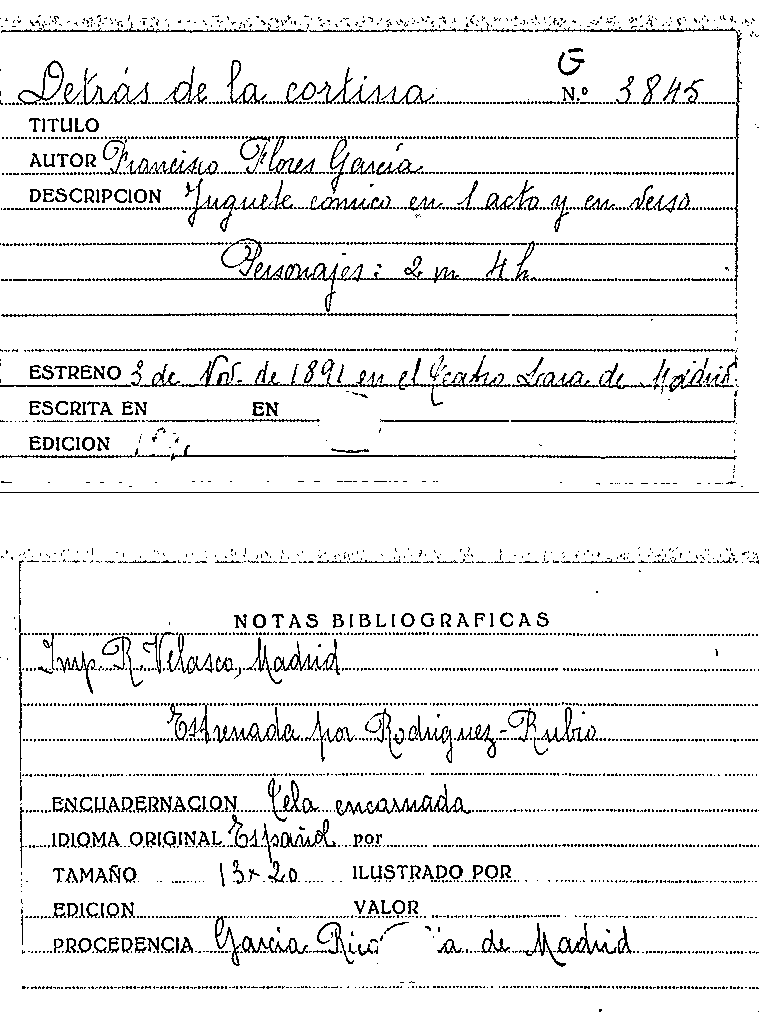 G
Detrás de la cortina N.º 3845
TITULO
AUTOR Francisco Flores García
DESCRIPCION Juguete cómico en 1 acto y en verso
Personajes: 2 m 4 h
ESTRENO 3 de Nov. de 1891 en el Teatro Lara de Madrid
ESCRITA EN EN
EDICION
NOTAS BIBLIOGRAFICAS
Imp. R. Velasco, Madrid
Estrenada por Rodriguez-Rubio
ENCUADERNACION Tela encarnada
IDIOMA ORIGINAL Español por
TAMAÑO 13 x 20 ILUSTRADO POR
EDICION VALOR
PROCEDENCIA García Rico de Madrid